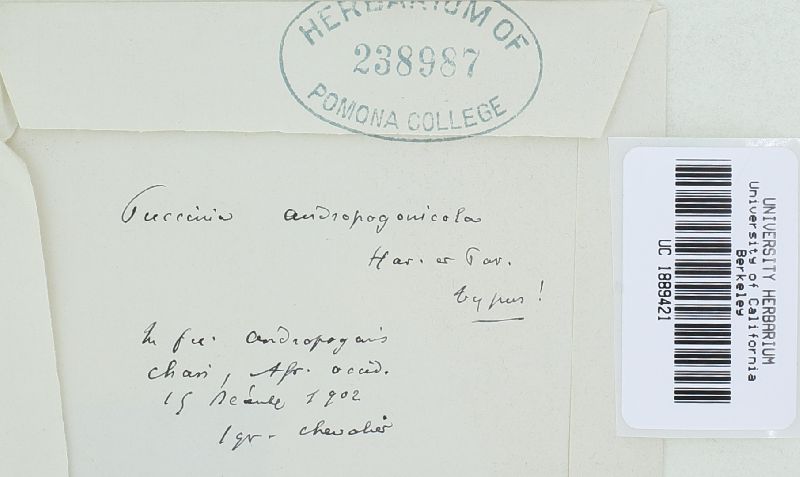 HERBARIUM OF
238987
POMONA COLLEGE
Puccinia andropogonicola
Har. et Pat.
typus!
andropogonis
Chari, Afr. occid.
15 Décemb 1902
Chevalier
UNIVERSITY HERBARIUM
University of California
Berkeley
UC 1889421